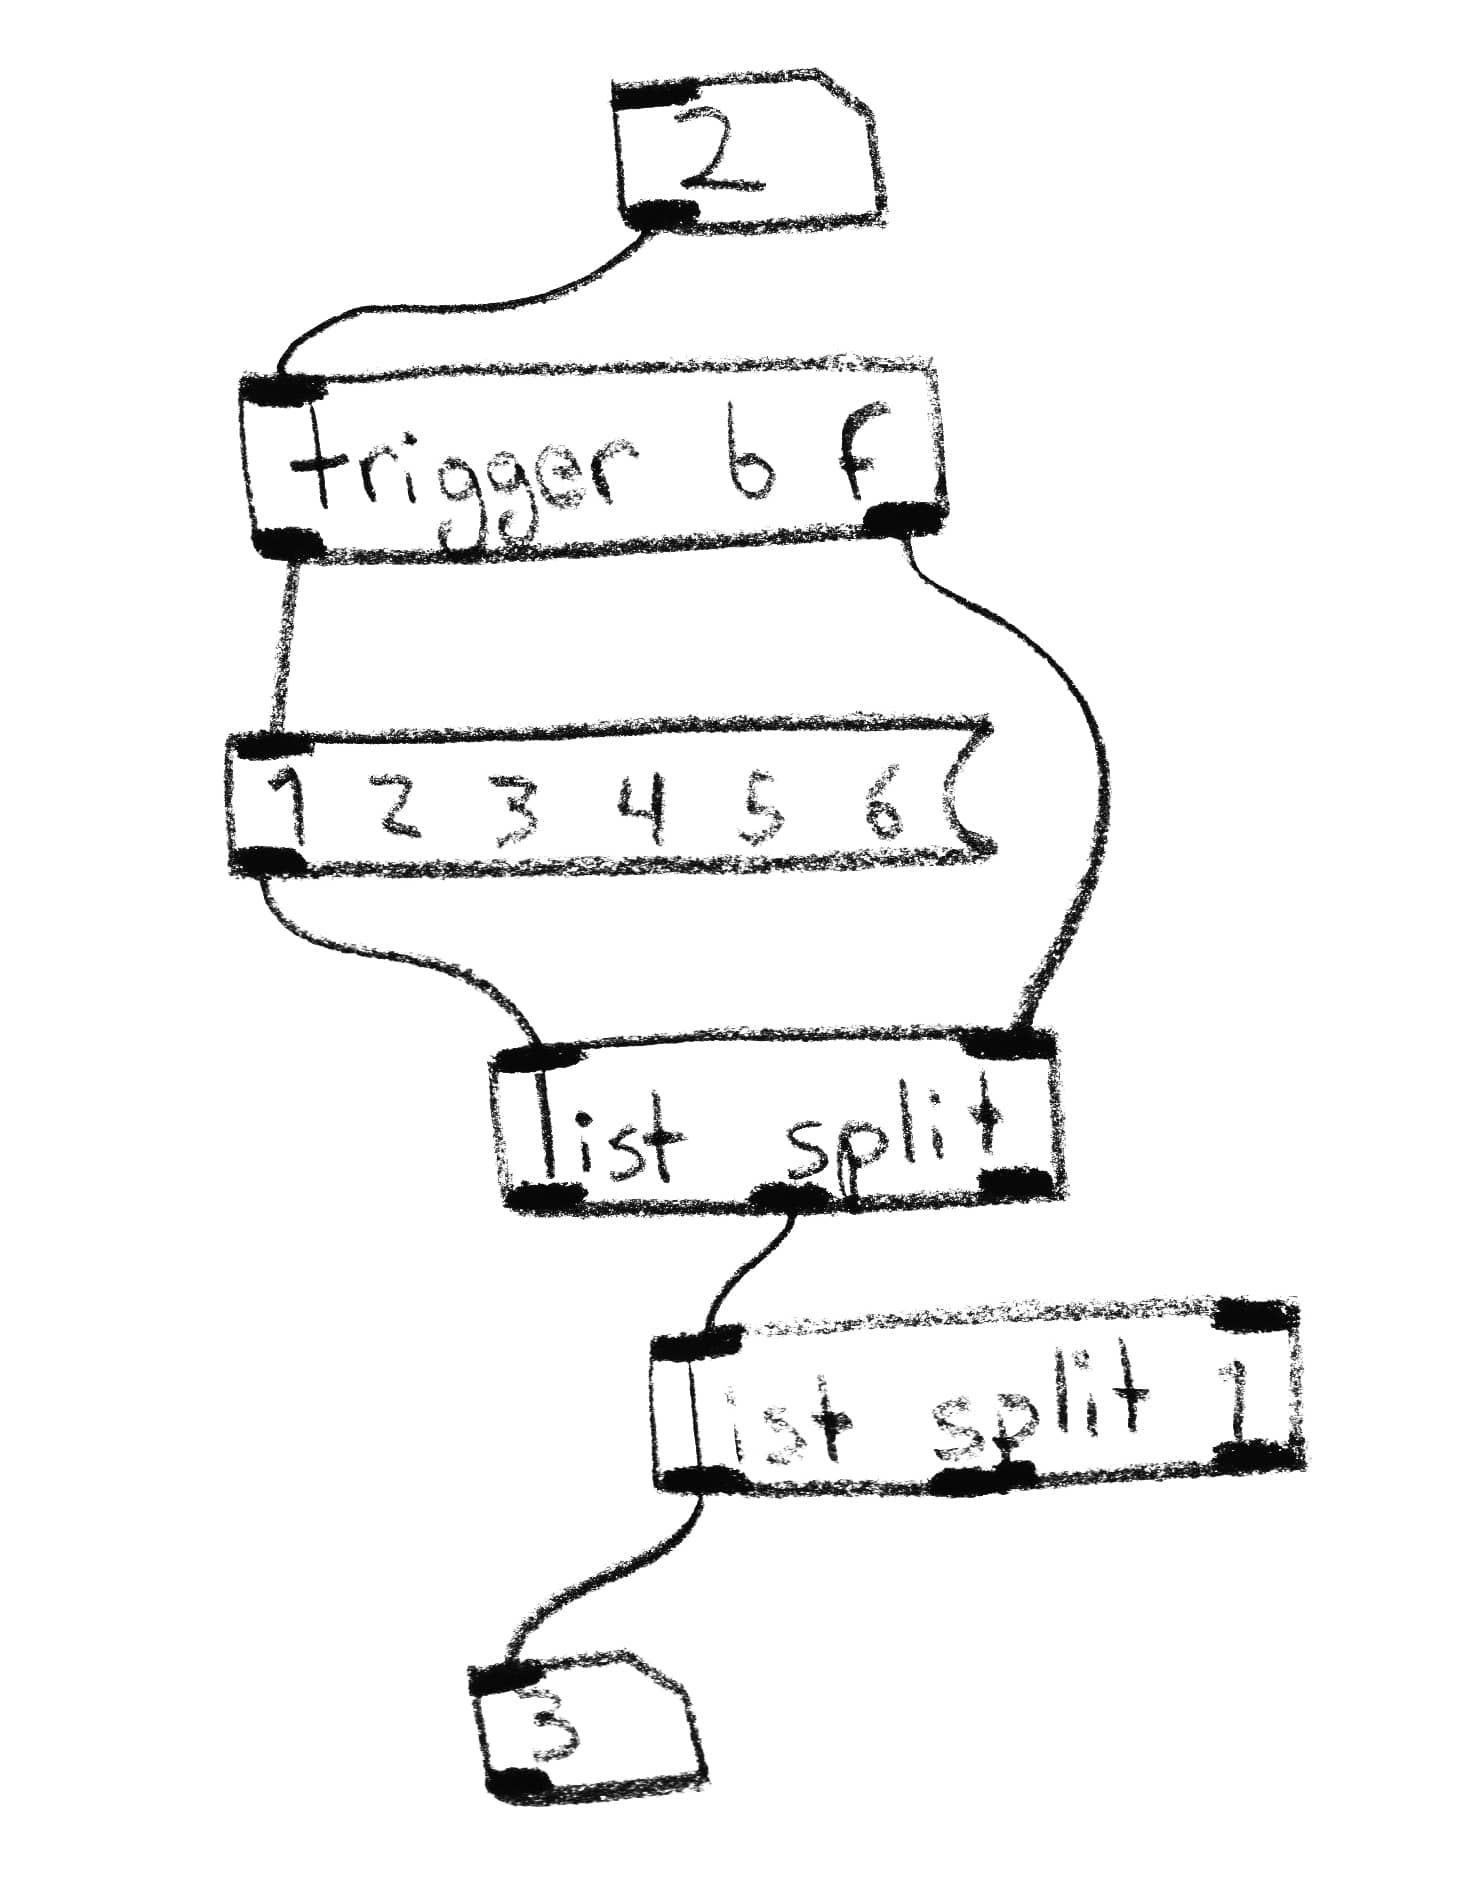 2
trigger b f
1 2 3 4 5 6
list split
list split 1
3